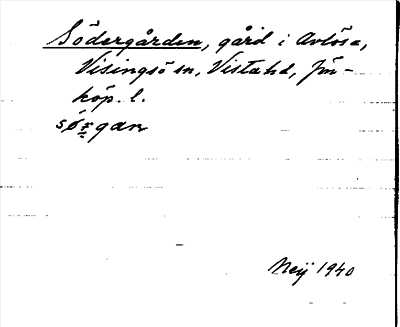 Södergården, gård i Avlösa,
Visingsö sn, Vista hd, Jön-
köp. l.
sørgan
Neij 1940